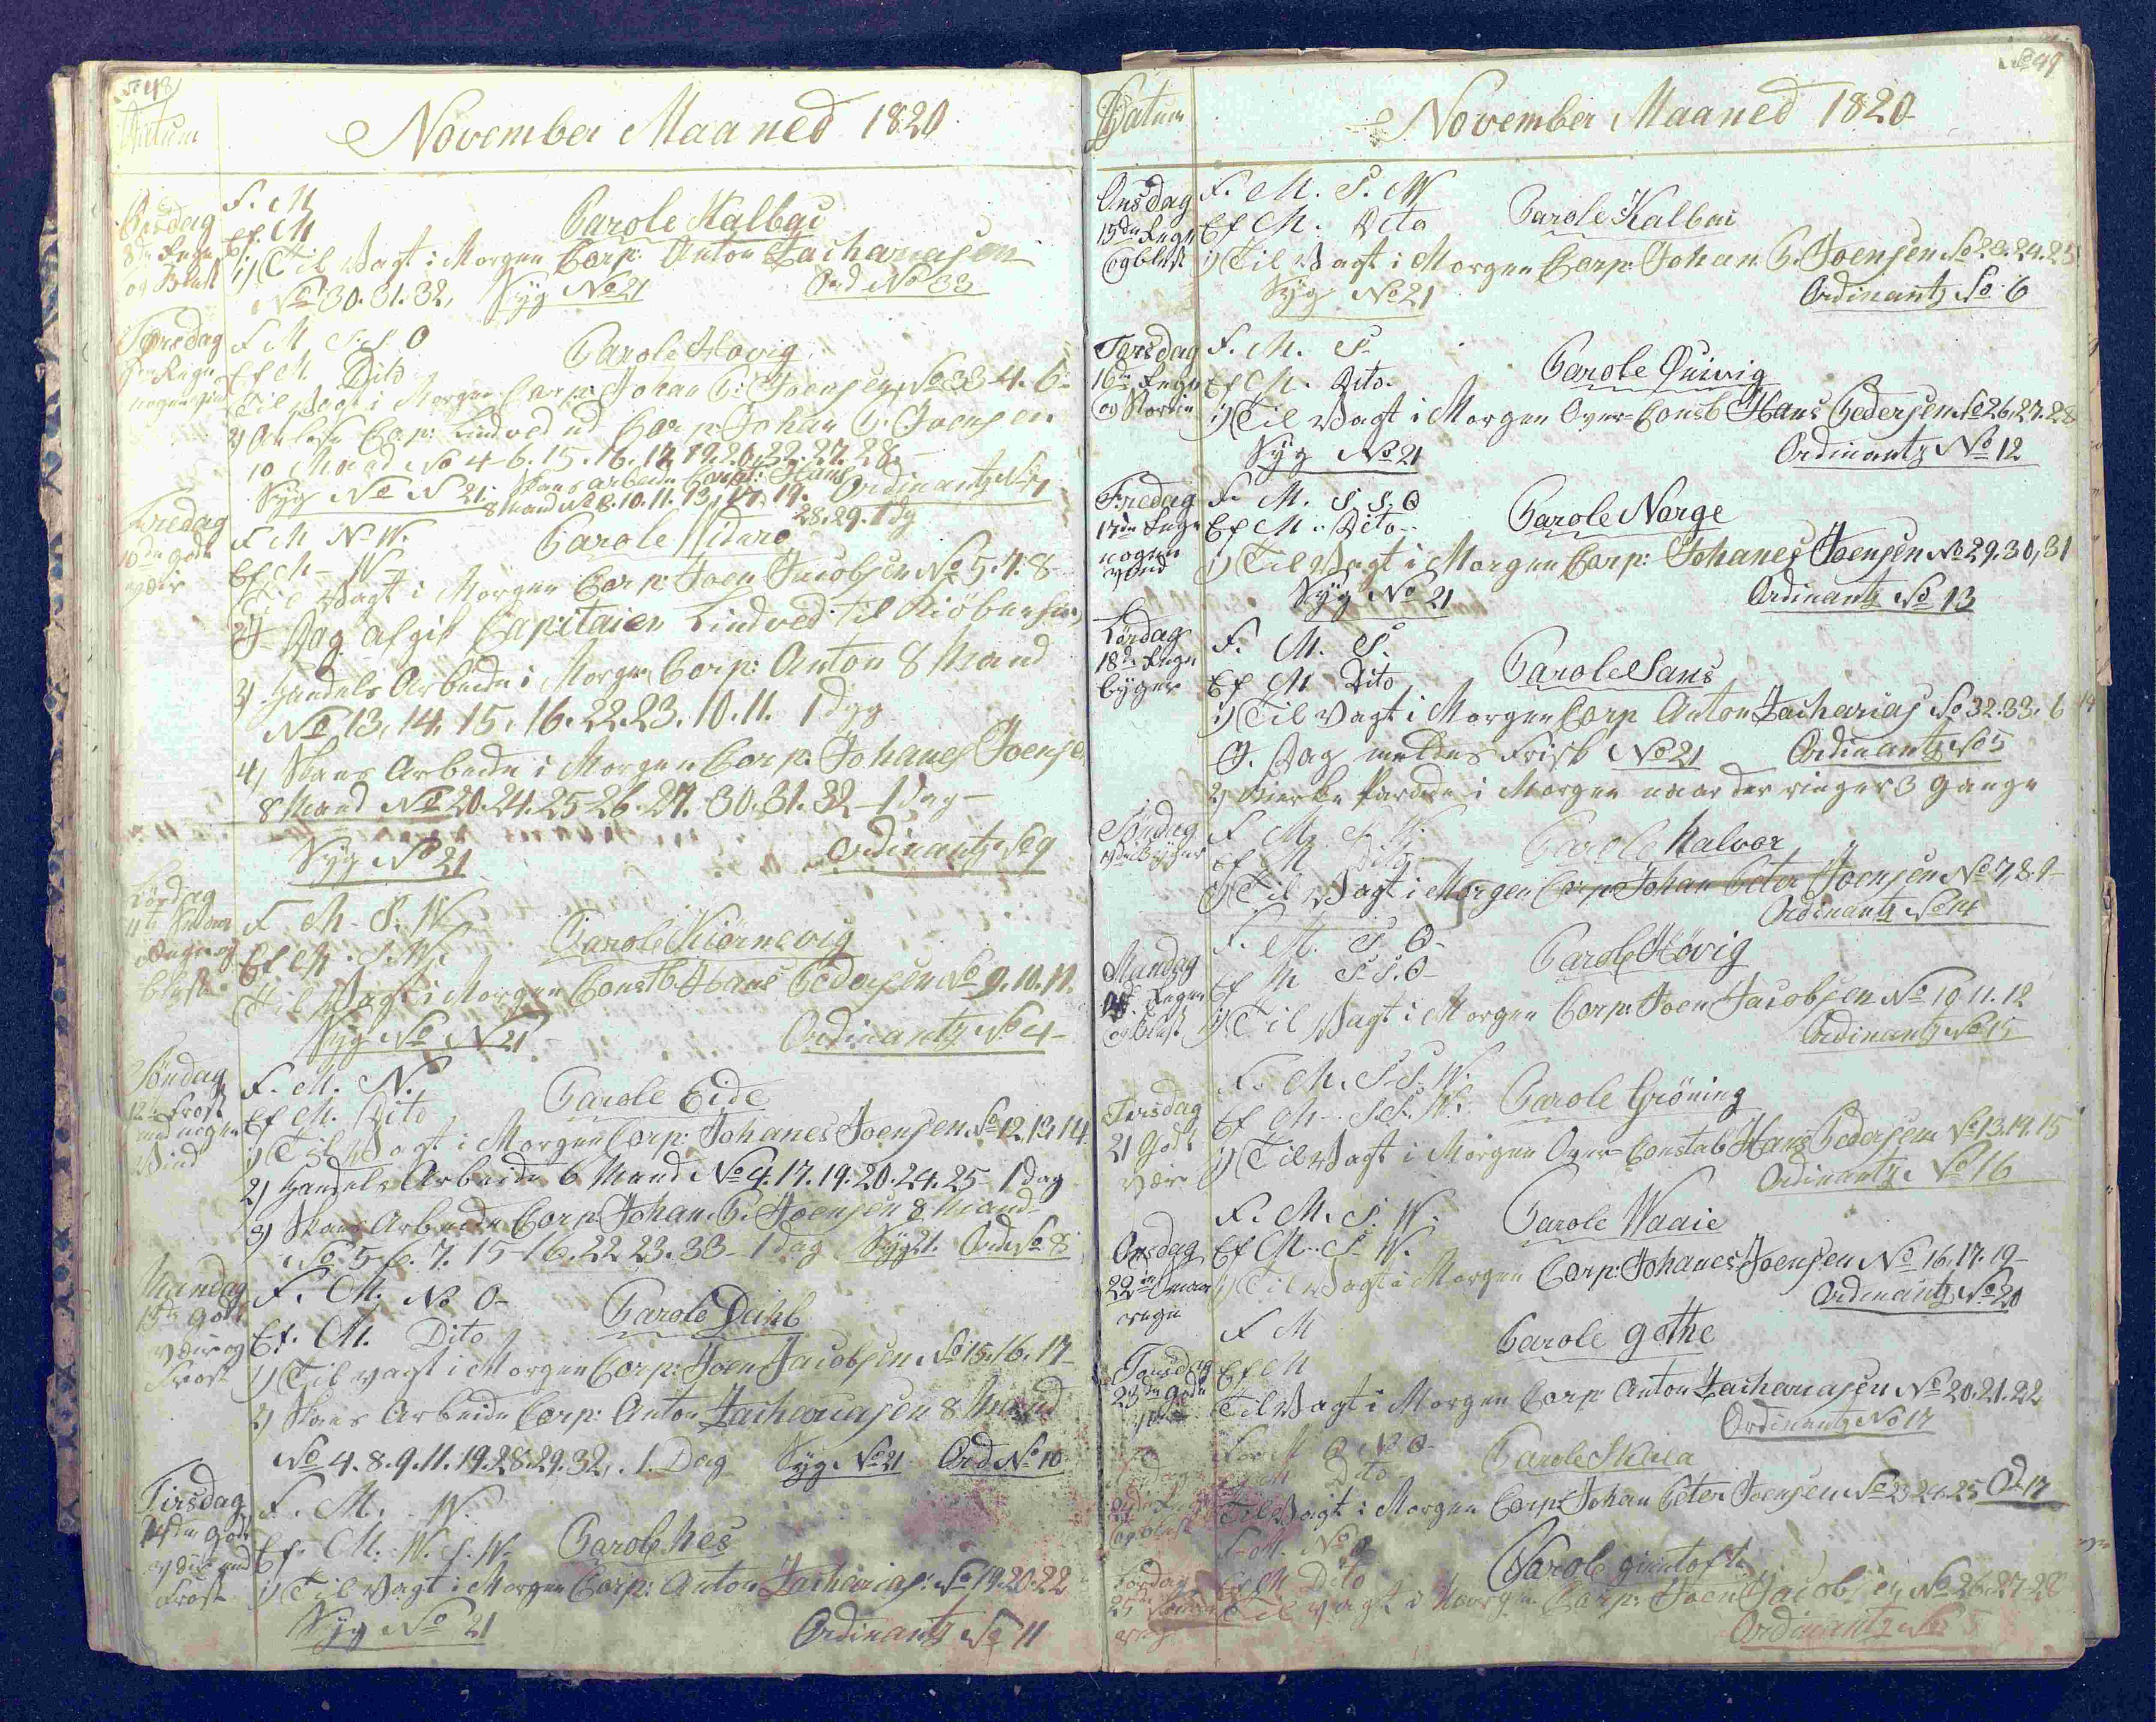 No 48
Datum
November Maaned 1820
Onsdag
8de Regn
og Blæst
F. M
Ef. M
Parole Kalbac
1) Til Vagt i Morgen Corp: Anton Zachariasen
No 30. 31. 32, Syg No 21 Ord No 33
Torsdag
Regn
nogen Vind
F M S. S O
Ef M Dito
Parole Hovig
Til Vagt i Morgen Corp: Johan P: Joensen No 33 4. 6
2) Corp: Lindved ud Corp: Johan P: Joensen
10 Mand No 4-6. 15. 16. 17 19. 20. 22. 27. 28.
Skans arbeide Const: Hans
Syg No N 21. 8 Mand No 8. 10. 11. 13, 17. 19. Ordinantz No 7
28. 29. 1 dg
Fredag
10de godt
veir
F M N W.
Ef M - W -
Parole Nidaro
Til Vagt i Morgen Corp: Joen Jacobsen No 5. 7. 8
2) J Dag afgik Capitaien Lindved til Kiöbenhavn
3) Handels Arbeide i Morgen Corp: Anton 8 Mand
No 13, 14, 15, 16. 22. 23. 10. 11. 1 dag
4) Skans Arbeide i Morgen Corp: Johanes Joensen
8 Mand No 20. 24. 25 26. 27. 30. 31. 32 - 1 dag -
Syg No 21 Ordinantz No 9
Lördag
11te
Regn og
blæst
F M - S. W
Ef M - S. W.
Parole Kiörnevig
Til Vagt i Morgen Constb Hans Pedersen No 9. 10. 11.
Syg No N 21 Ordinantz No 4-
Söndag
12te Frost
med nogen
Vind
F. M. N.
Ef M. Dito
Parole Eide
1) Til Vagt i Morgen Corp: Johanes Joensen No 12, 13, 14
2) Handels Arbeide 6 Mand No 4. 17. 19. 20. 24. 25 - 1 dag
3) Skans Arbeide Corp Johan P. Joensen 8 Mand
No 5. 6. 7. 15 - 16. 22 23. 33 - 1 dag Syg 21. Ord No 8
Mandag
13de godt
veir og
Frost
F. M. N O -
Ef. M. Dito
Parole Dahl
1) Til Vagt i Morgen Corp: Joen Jacobsen No 15. 16. 17
2) Skans Arbeide Corp: Anton Zachariasen 8 Mand
No 4. 8. 9. 11. 19. 28. 29. 32, . 1. Dag Syg No 21 Ord No 10
Tirsdag
14de godt
veir med
Frost
F. M. W.
Ef. M. W. S. W.
Parole Nes
1) Til Vagt i Morgen Corp: Anton Zacharias: No 19. 20. 22
Syg No 21 Ordinantz No 11
No 49
Datum
November Maaned 1820
Onsdag
15de Regn
og blæst
F. M. S. W
Ef M. Dito
Parole Kalbac
1) Til Vagt i Morgen Corp: Johan P. Joensen No 23. 24. 25
Syg No 21 Ordinantz No 6
Torsdag
16de Regn
og Storm
F. M. S -
Ef M. Dito.
Parole Quivig
1) Til Vagt i Morgen Over-Constb Hans Pedersen No 26, 27. 28
Syg No 21 Ordinantz No 12
Fredag
17de Regn
nogen
Vind
F. M. S S. O
Ef M. Dito -
Parole Norge
1) Til Vagt i Morgen Corp: Johanes Joensen No 29. 30, 31
Syg No 21 Ordinantz No 13
Lördag
18de Regn
byger
F. M. S.
Ef M Dito
Parole Sans
1) Til Vagt i Morgen Corp Anton Zacharias No 32. 33. 6
J. Dag meldes Frisk No 21 Ordinantz No 5
2) Kierke Parade i Morgen naar der ringer 3 gange
Söndag
F M. S W.
ef M Dito
Parole Halvor
1) Til Vagt i Morgen Corp: Johan Peter Joensen No 7 8 9 -
Ordinantz No 14
Mandag
Regn
og blæst
F. M. S O -
Ef M S. S. O -
Parole Hövig
1) Til Vagt i Morgen Corp: Joen Jacobsen No 10 11. 12
Ordinantz No 15
Tirsdag
21 Godt
veir
F. M. S. S. W.
Ef M - S. S. W.
Parole Gröning
1) Til Vagt i Morgen Over-Constab Hans Pedersen No 13. 14. 15
Ordinantz No 16
Onsdag
22
regn
F. M. S. W.
Ef M. S - W.
Parole Waaie
1) Til Vagt i Morgen Corp: Johanes Joensen No 16, 17. 19 -
Ordinantz No 20
Torsdag
23de godt
F M
Ef M
Parole gothe
Til Vagt i Morgen Corp Anton Zachariasen No 20. 21. 22
Ordinantz No 17
For M N O -
Dito
Parole
Til Vagt i Morgen Corp: Johan Peter Joensen No 23 24. 25 Od 17
og blæst
Lördag
25
F. M. N O
Ef M Dito
Parole
Til Vagt i Morgen Corp: Joen Jacobsen No 26. 27 28
Ordinantz No 5